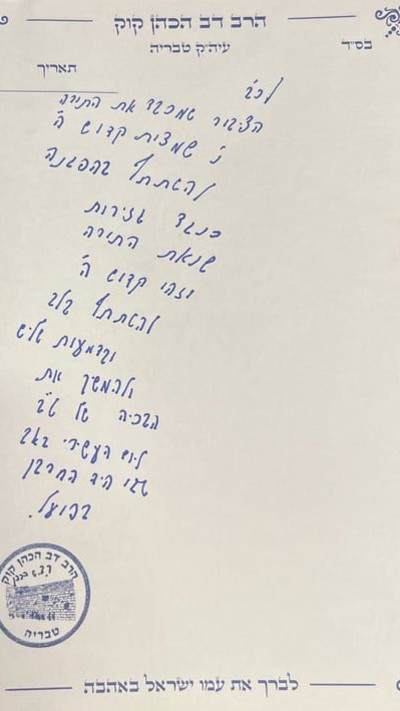 הרב דב הכהן קוק
עיה״ק טבריה
בס״ד
תאריך
לכל
הציבור שמכבד את התורה
שמצוה קדוש ה'
להשתתף בהפגנה
כנגד גזירות
שנאת התורה
וזהו קדוש ה'
להשתתף בלב
ובדמעות שליש
ולהמשיך את
הבכיה של ט"ב
ליום העשירי באב
שבו היה החרבן
בפועל.
הרב דב הכהן קוק
טבריה
לברך את עמו ישראל באהבה